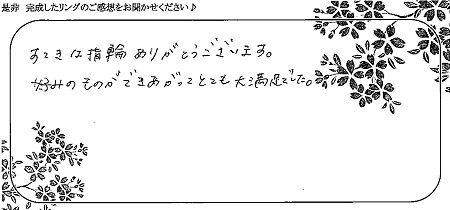 是非 完成したリングのご感想をお聞かせください♪
すてきな指輪ありがとうございます。
好みのものができあがってとても大満足でした。